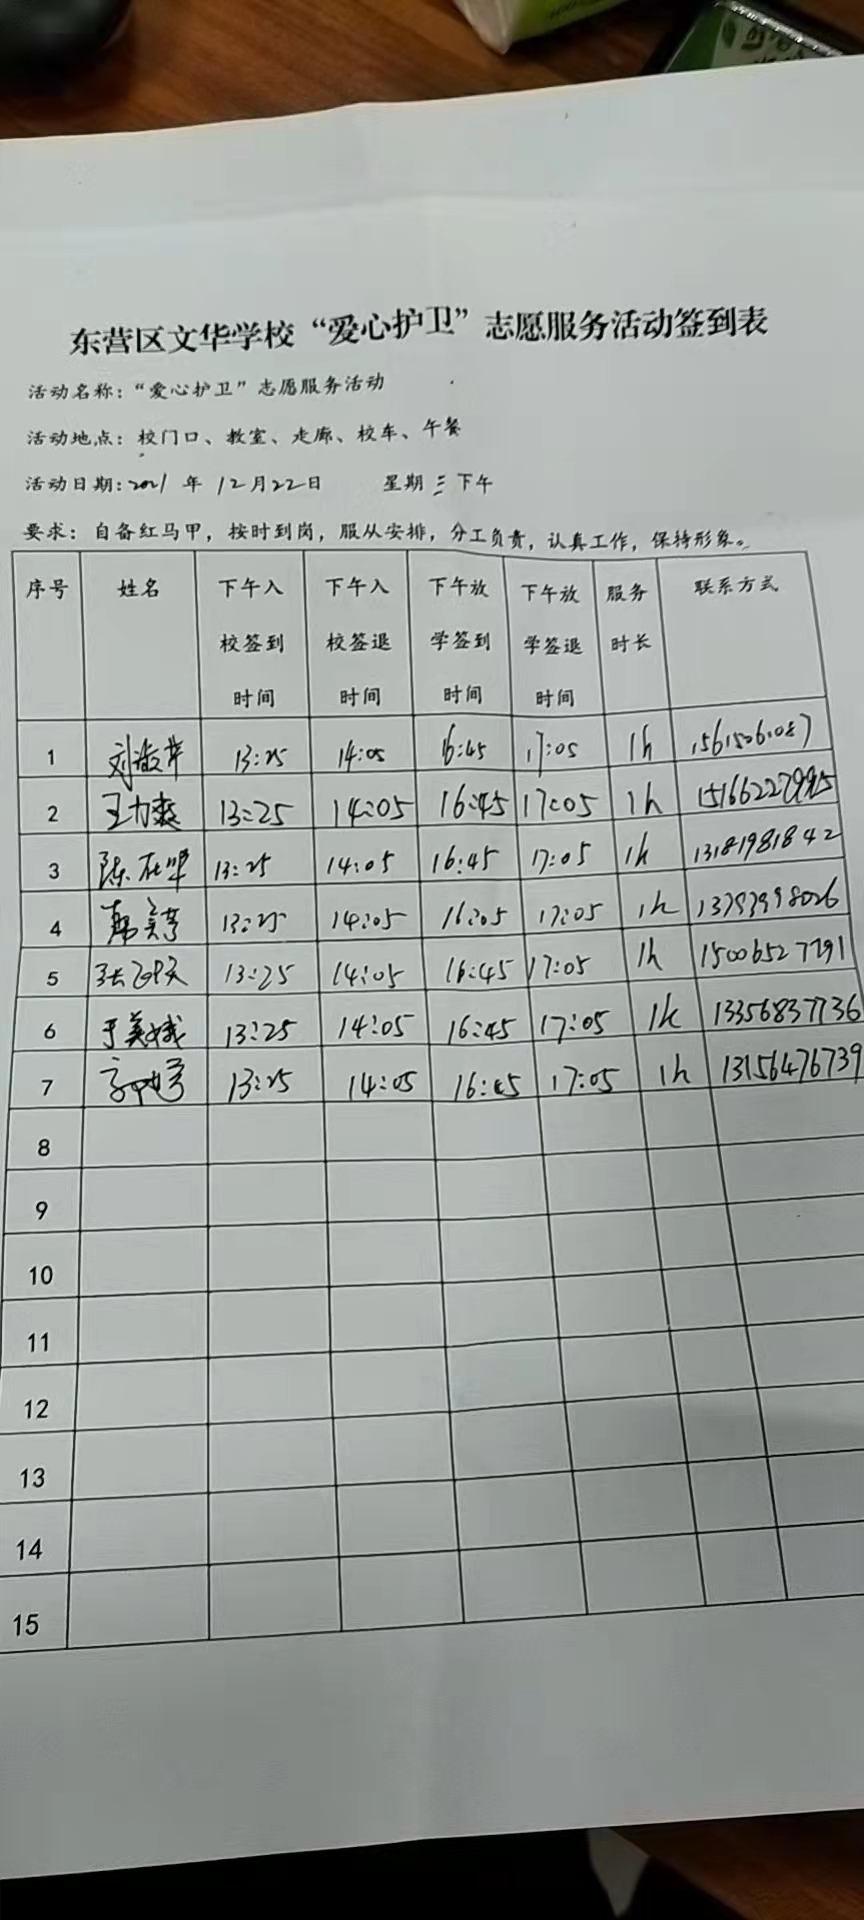 东营区文华学校“爱心护卫”志愿服务活动签到表
活动名称：“爱心护卫”志愿服务活动
活动地点：校门口、教室、走廊、校车、午餐
活动日期：2021 年 12月22日 星期三下午
要求：自备红马甲，按时到岗，服从安排，分工负责，认真工作，保持形象。
序号 姓名 下午入校签到时间 下午入校签退时间 下午放学签到时间 下午放学签退时间 服务时长 联系方式
1 13:25 14:05 16:45 17:05 1h
2 13:25 14:05 16:45 17:05 1h 15166227995
3 13:25 14:05 16:45 17:05 1h 13181981842
4 13:25 14:05 16:05 17:05 1h 13793998026
5 13:25 14:05 16:45 17:05 1h 15006527791
6 于美娥 13:25 14:05 16:45 17:05 1h 13356837736
7 13:25 14:05 16:45 17:05 1h 13156476739
8
9
10
11
12
13
14
15